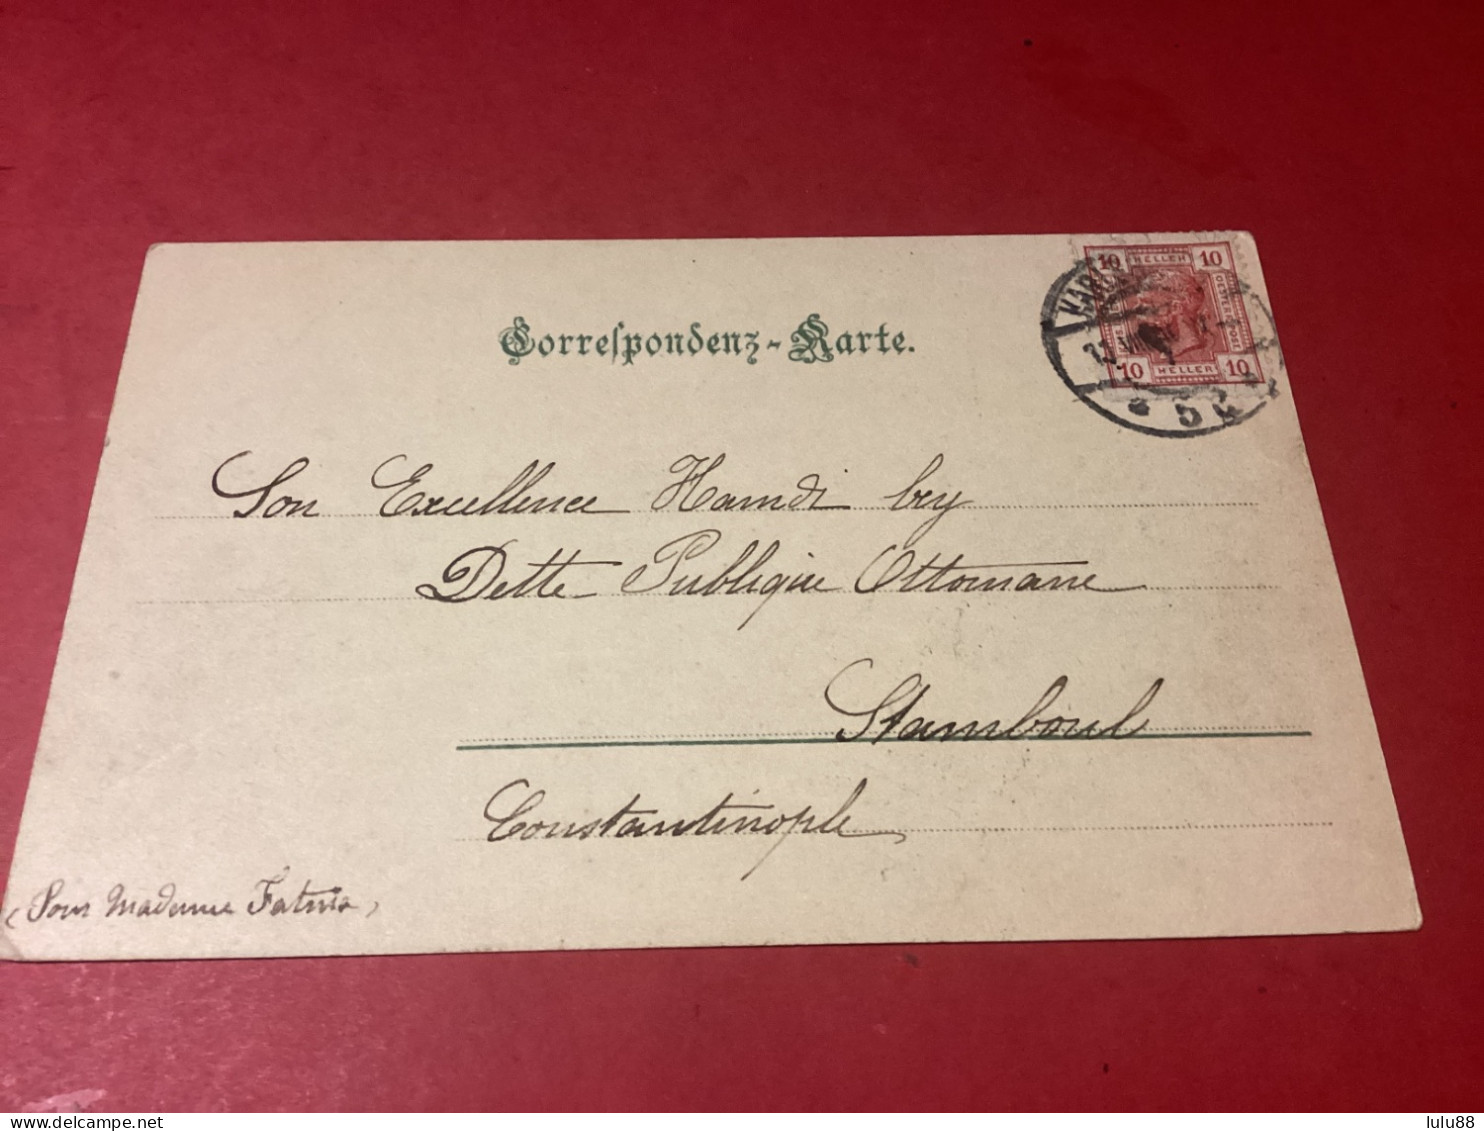 Correspondenz-Karte.
10 HELLER 10
10 HELLER 10
5
Son Excellence Hamdi bey
Dette Publique Ottomane
Stamboul
Constantinople
(Pour Madame Fatma)
delcampe.net
lulu88